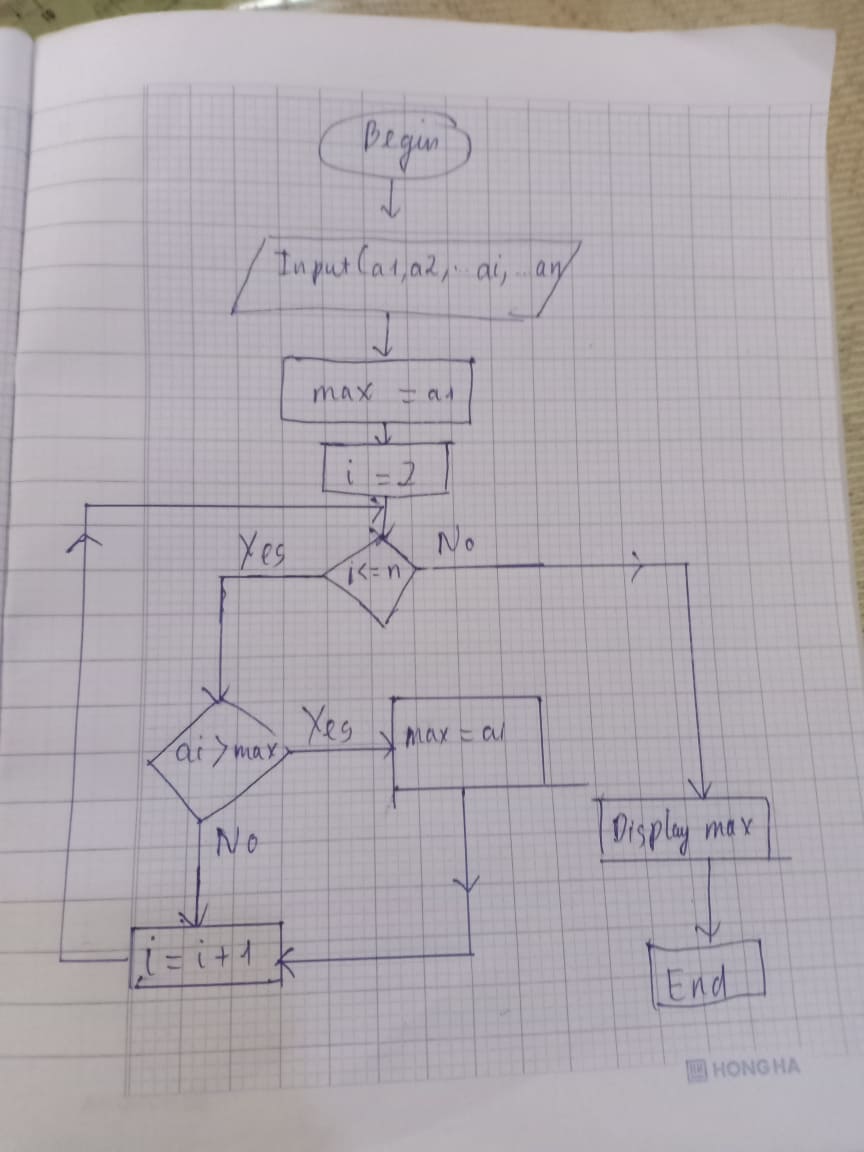 Begin
Input(a1,a2,..ai,..an
max = a1
i = 2
Yes
No
i<=n
ai>max
Yes
max = a1
No
Display max
i = i+1
End
HONG HA